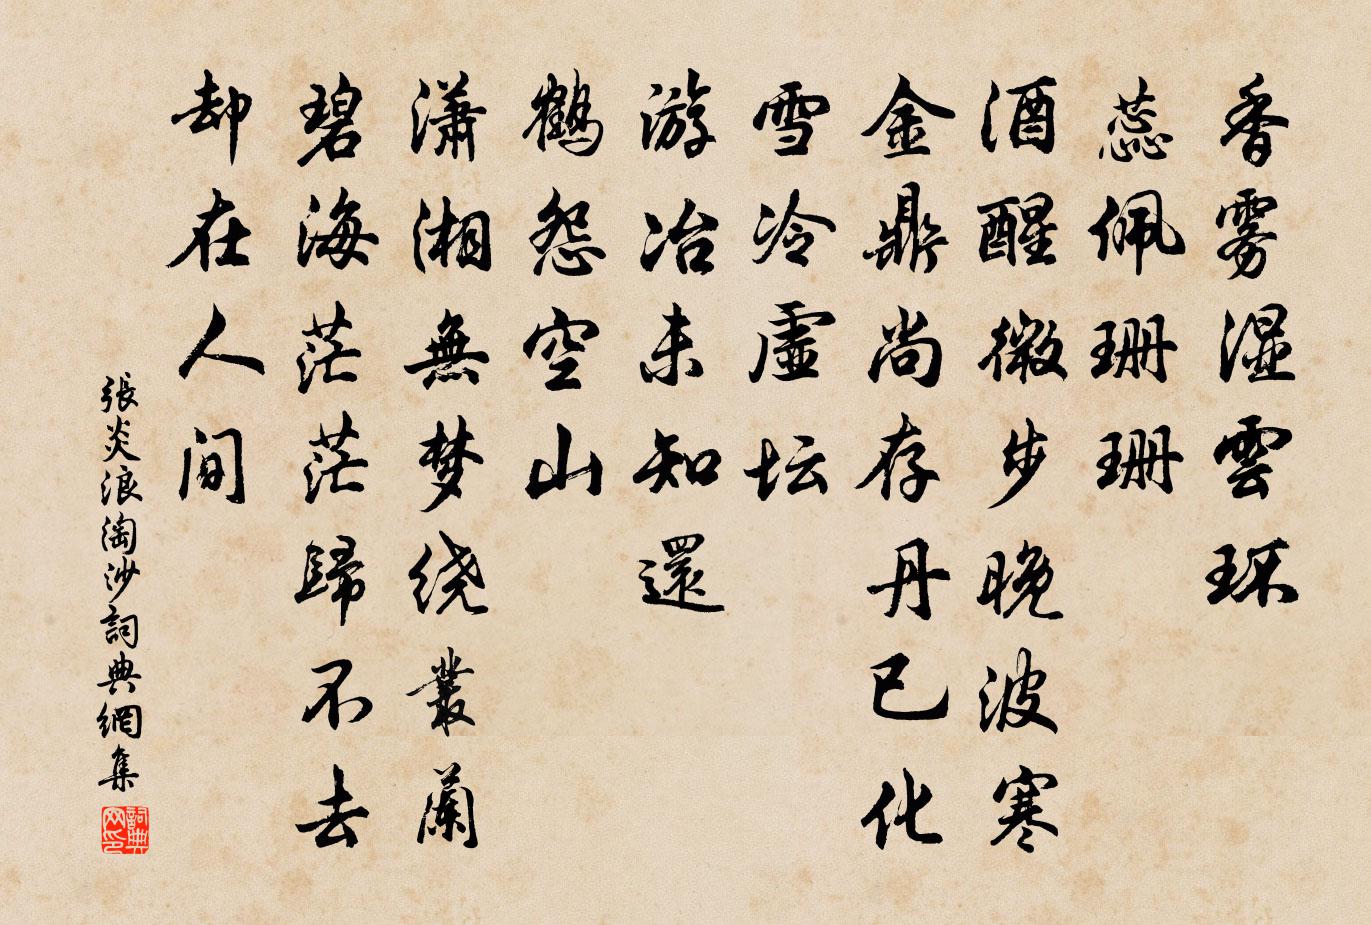 香雾湿雲环
蕊佩珊珊
酒醒微步晚波寒
金鼎尚存丹已化
雪冷虚坛
游冶未知還
鹤怨空山
潇湘無梦绕叢蘭
碧海茫茫歸不去
却在人间
張炎浪淘沙詞典網集
詞典网印